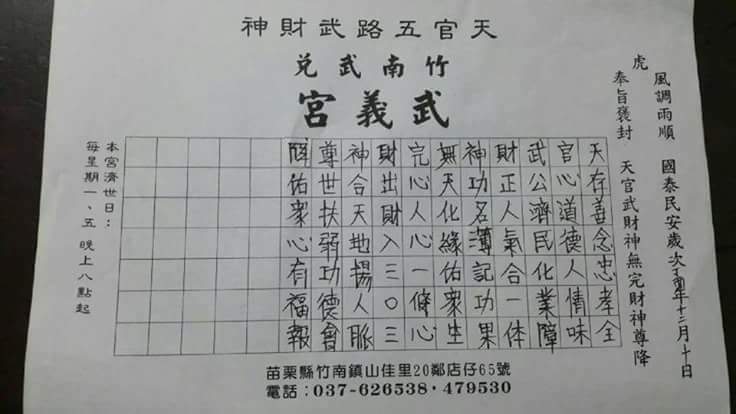 天官五路武財神
竹南武兌
武義宮
風調雨順 國泰民安歲次丁酉年十二月十日
虎
奉旨褒封 天官武財神無完財神尊降
天存善念忠孝全
官心道德人情味
武公濟民化業障
財正人氣合一体
神功名薄記功果
無天化緣佑眾生
完心人心一條心
財出財入三〇三
神合天地揚人脈
尊世扶弱功德會
降佑眾心有福報
本宮濟世日：
每星期一、五 晚上八點起
苗栗縣竹南鎮山佳里20鄰店仔65號
電話：037-626538·479530